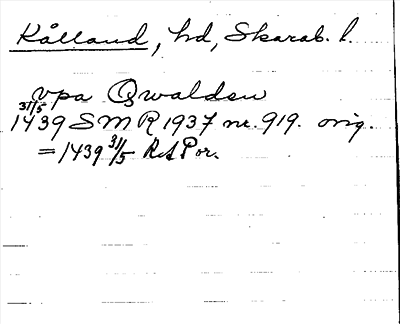 Kålland, hd, Skarab. l.
vpa Qwalden
31/5
1439 SMR 1937 nr. 919. orig.
= 1439 31/5 RA Por.